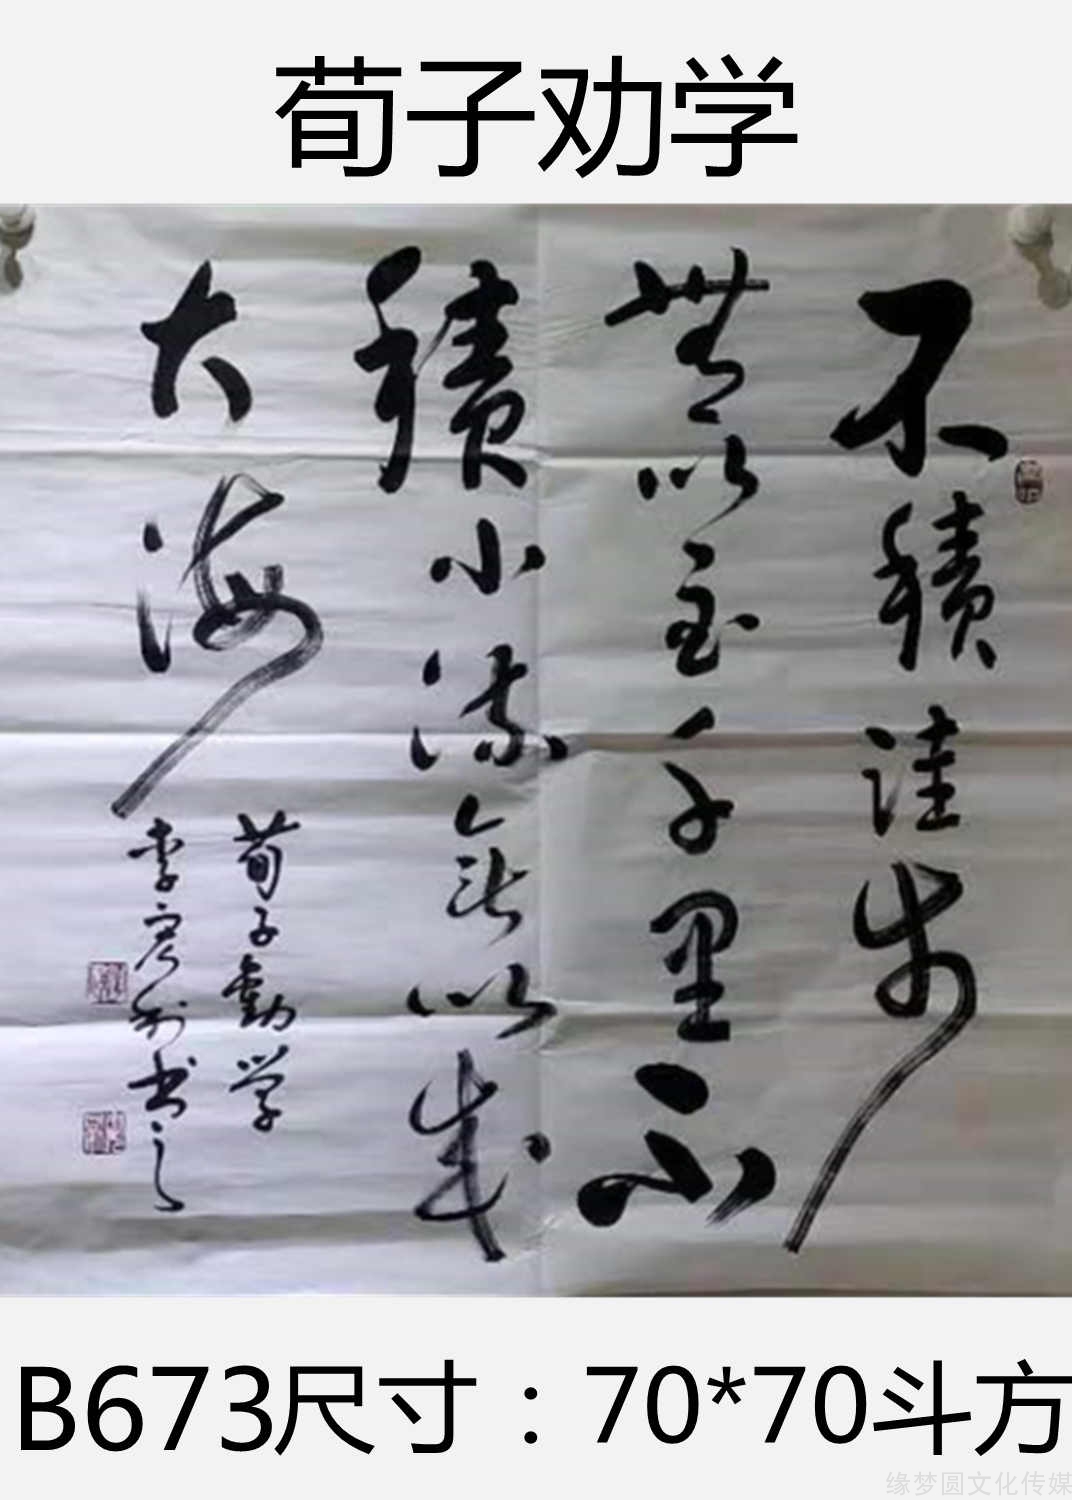 荀子劝学
不積跬步
無以至千里不
積小流無以成
大海
荀子勸学
李彦利书之
B673尺寸：70*70斗方
缘梦圆文化传媒